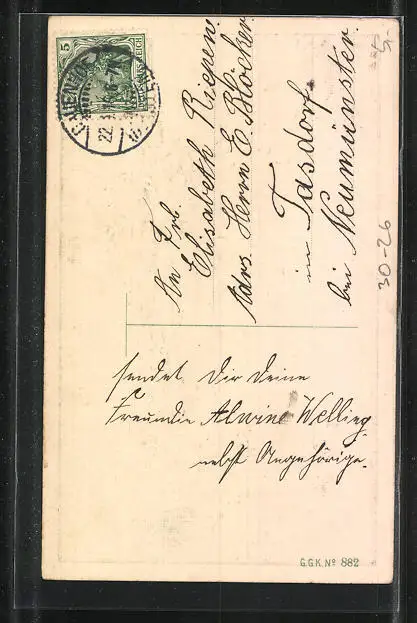 An Frl.
Elisabeth Riepen.
Adrs. Herrn E. Blöcker
in Tasdorf.
bei Neumünster.
sendet Dir deine
Freundin Alwine Welling
nebst Angehörige.
5
DEUTSCHES REICH
22.3.
30-26
5,-
G.G.K. Nº 882